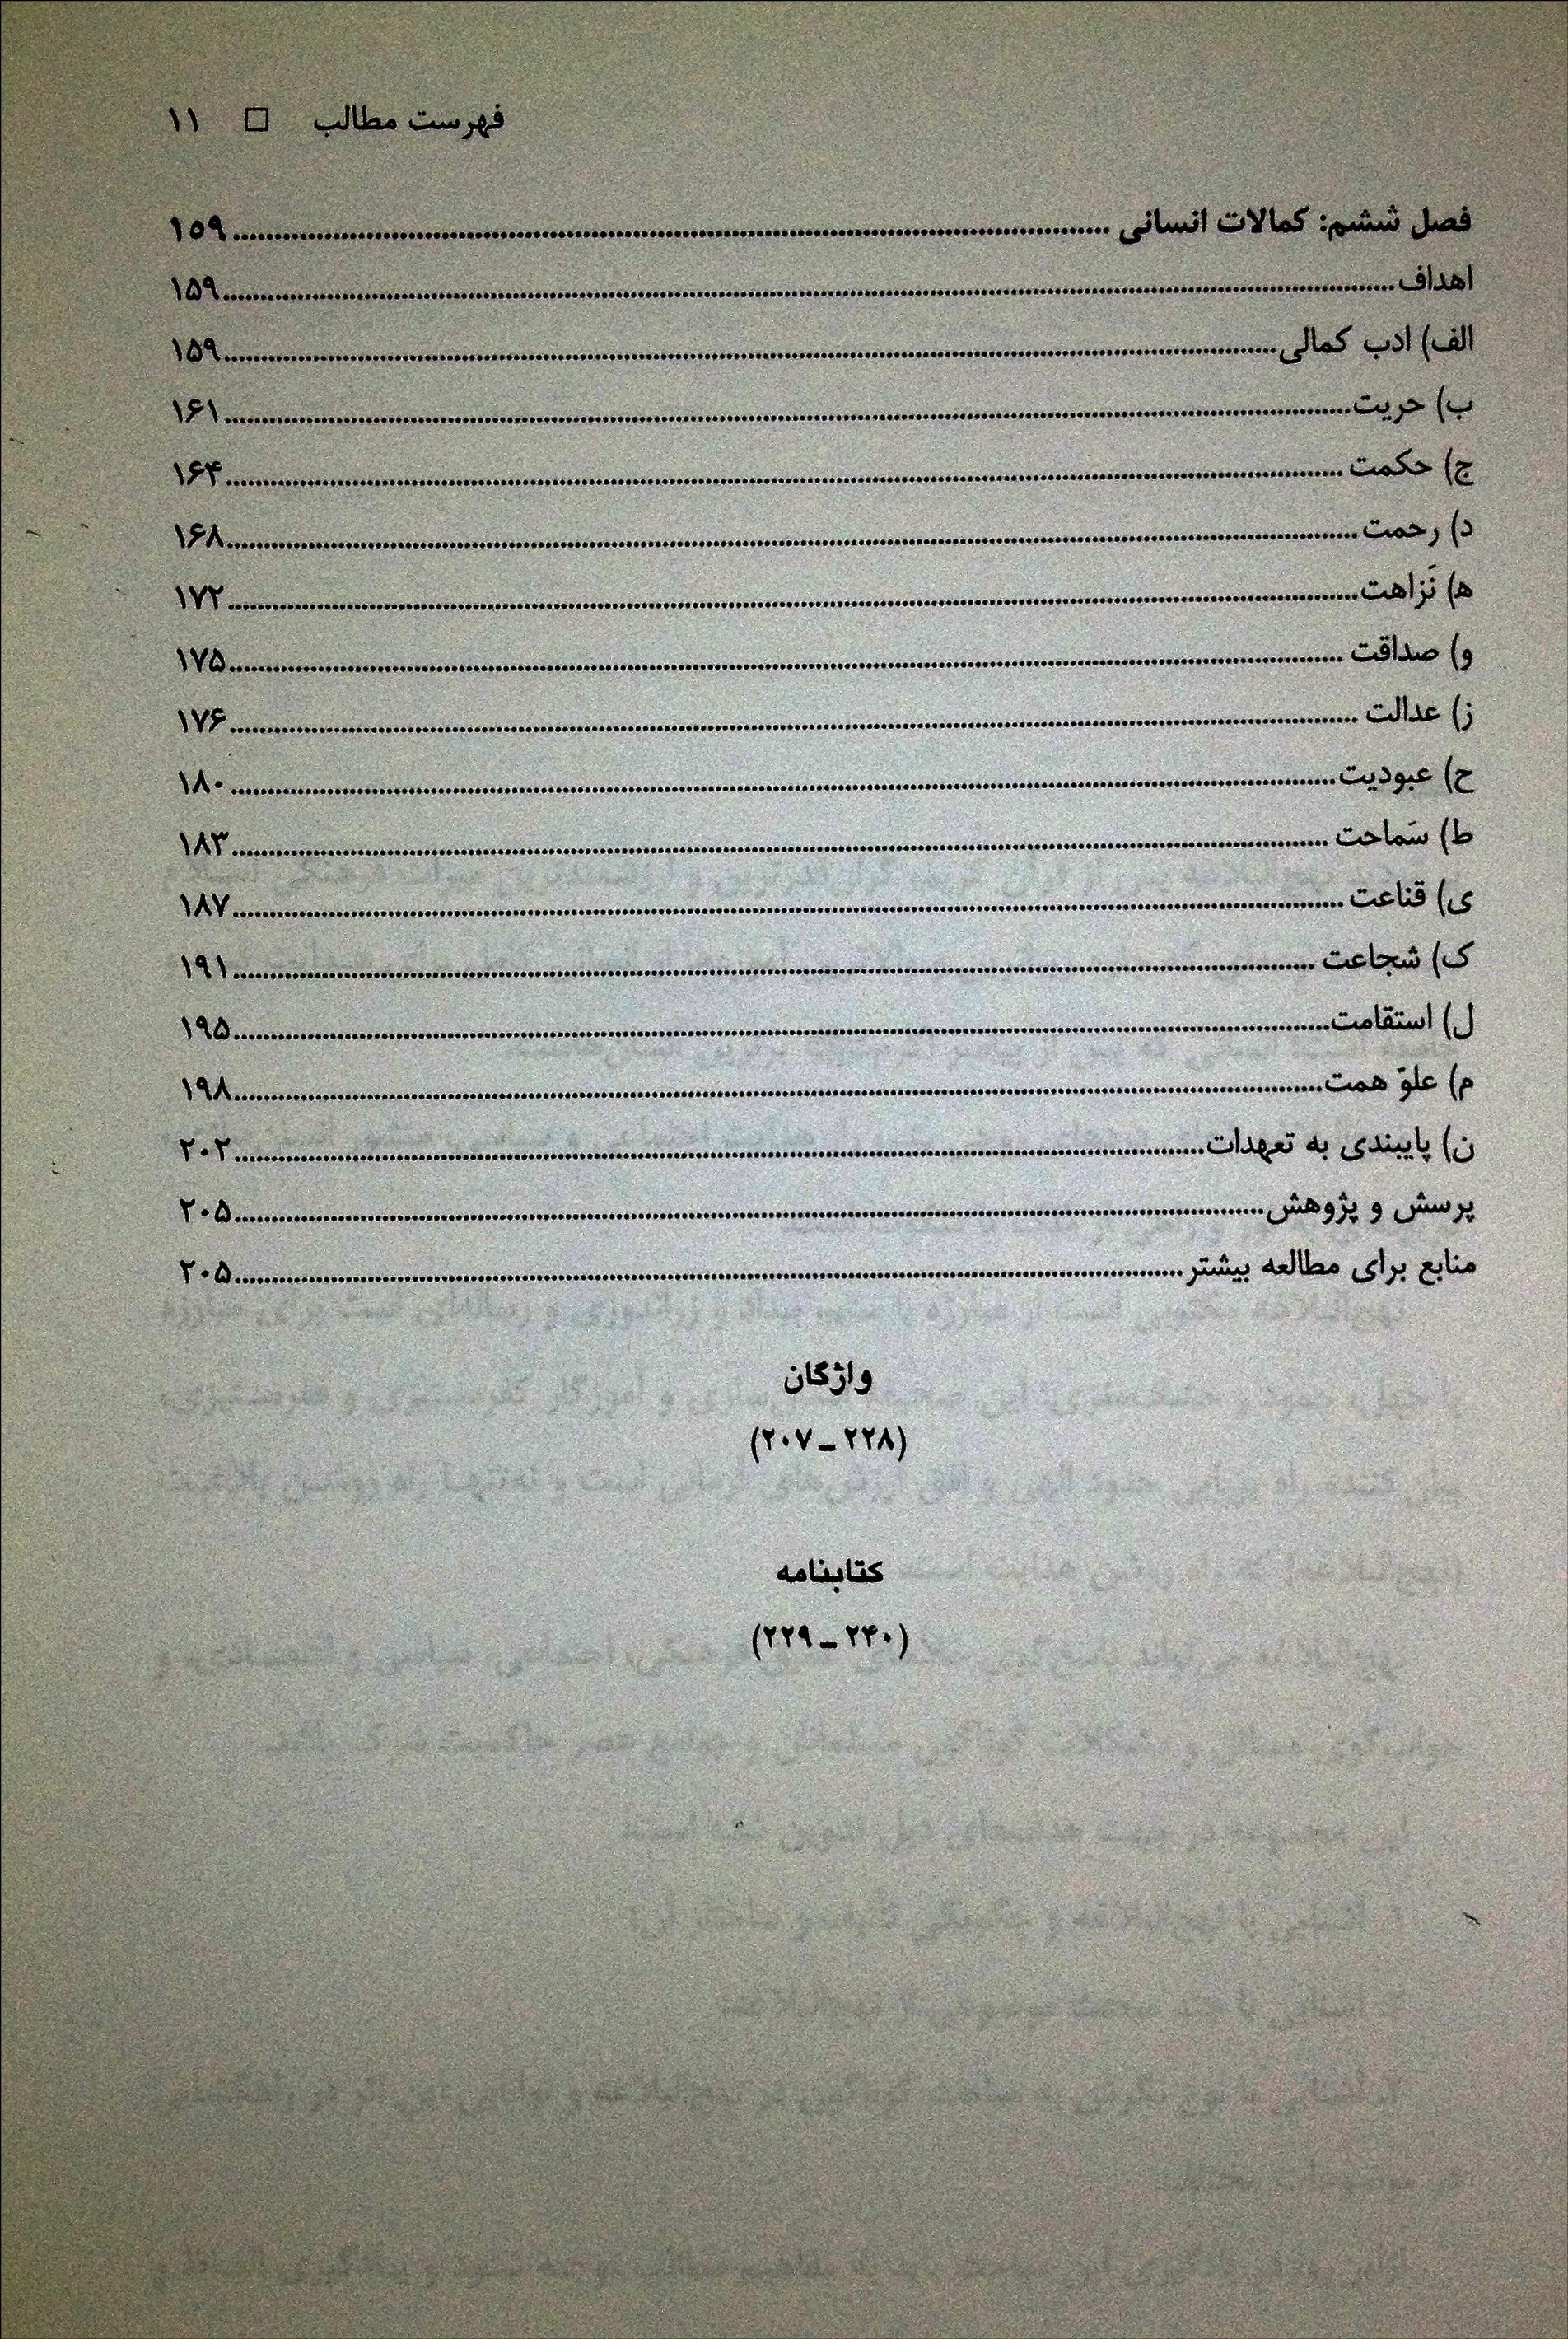 فهرست مطالب □ ۱۱
فصل ششم: کمالات انسانی ........ ۱۵۹
اهداف ........ ۱۵۹
الف) ادب کمالی ........ ۱۵۹
ب) حریت ........ ۱۶۱
ج) حکمت ........ ۱۶۴
د) رحمت ........ ۱۶۸
ه) نَزاهت ........ ۱۷۲
و) صداقت ........ ۱۷۵
ز) عدالت ........ ۱۷۶
ح) عبودیت ........ ۱۸۰
ط) سَماحت ........ ۱۸۳
ی) قناعت ........ ۱۸۷
ک) شجاعت ........ ۱۹۱
ل) استقامت ........ ۱۹۵
م) علوّ همت ........ ۱۹۸
ن) پایبندی به تعهدات ........ ۲۰۲
پرسش و پژوهش ........ ۲۰۵
منابع برای مطالعه بیشتر ........ ۲۰۵
واژگان
(۲۰۷ ـ ۲۲۸)
کتابنامه
(۲۲۹ ـ ۲۴۰)